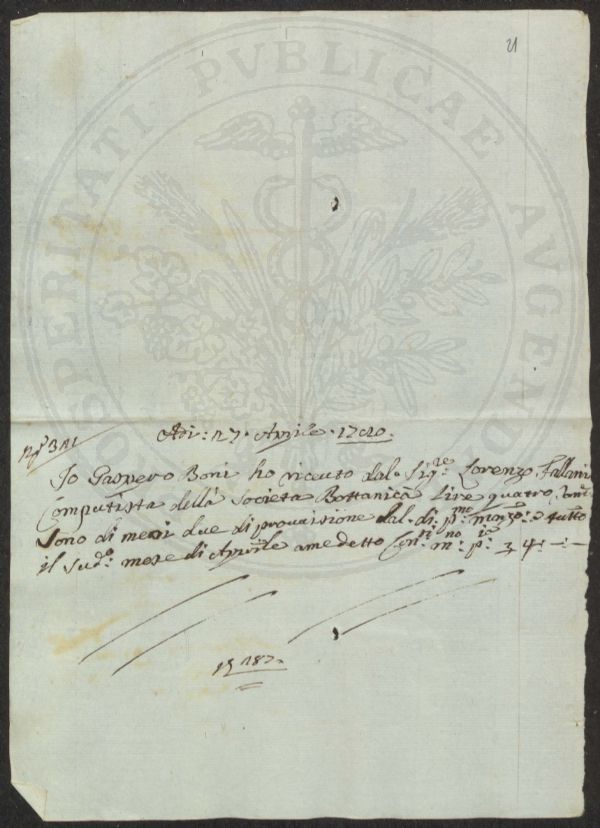 21
PROSPERITATI PVBLICAE AVGENDAE
Adi: 27. Aprile. 1740.
N.º 321
Io Gaspero Boni ho riceuto dal Sig.re Lorenzo Fallani
Computista della Societa Bottanica Lire quatro,
sono di mesi due di prouisione dal di: p.mo marzo: e tutto
il Sud.o: mese di Aprile a me detto Con.ti m.no: p.ia: 4.–.–
187.